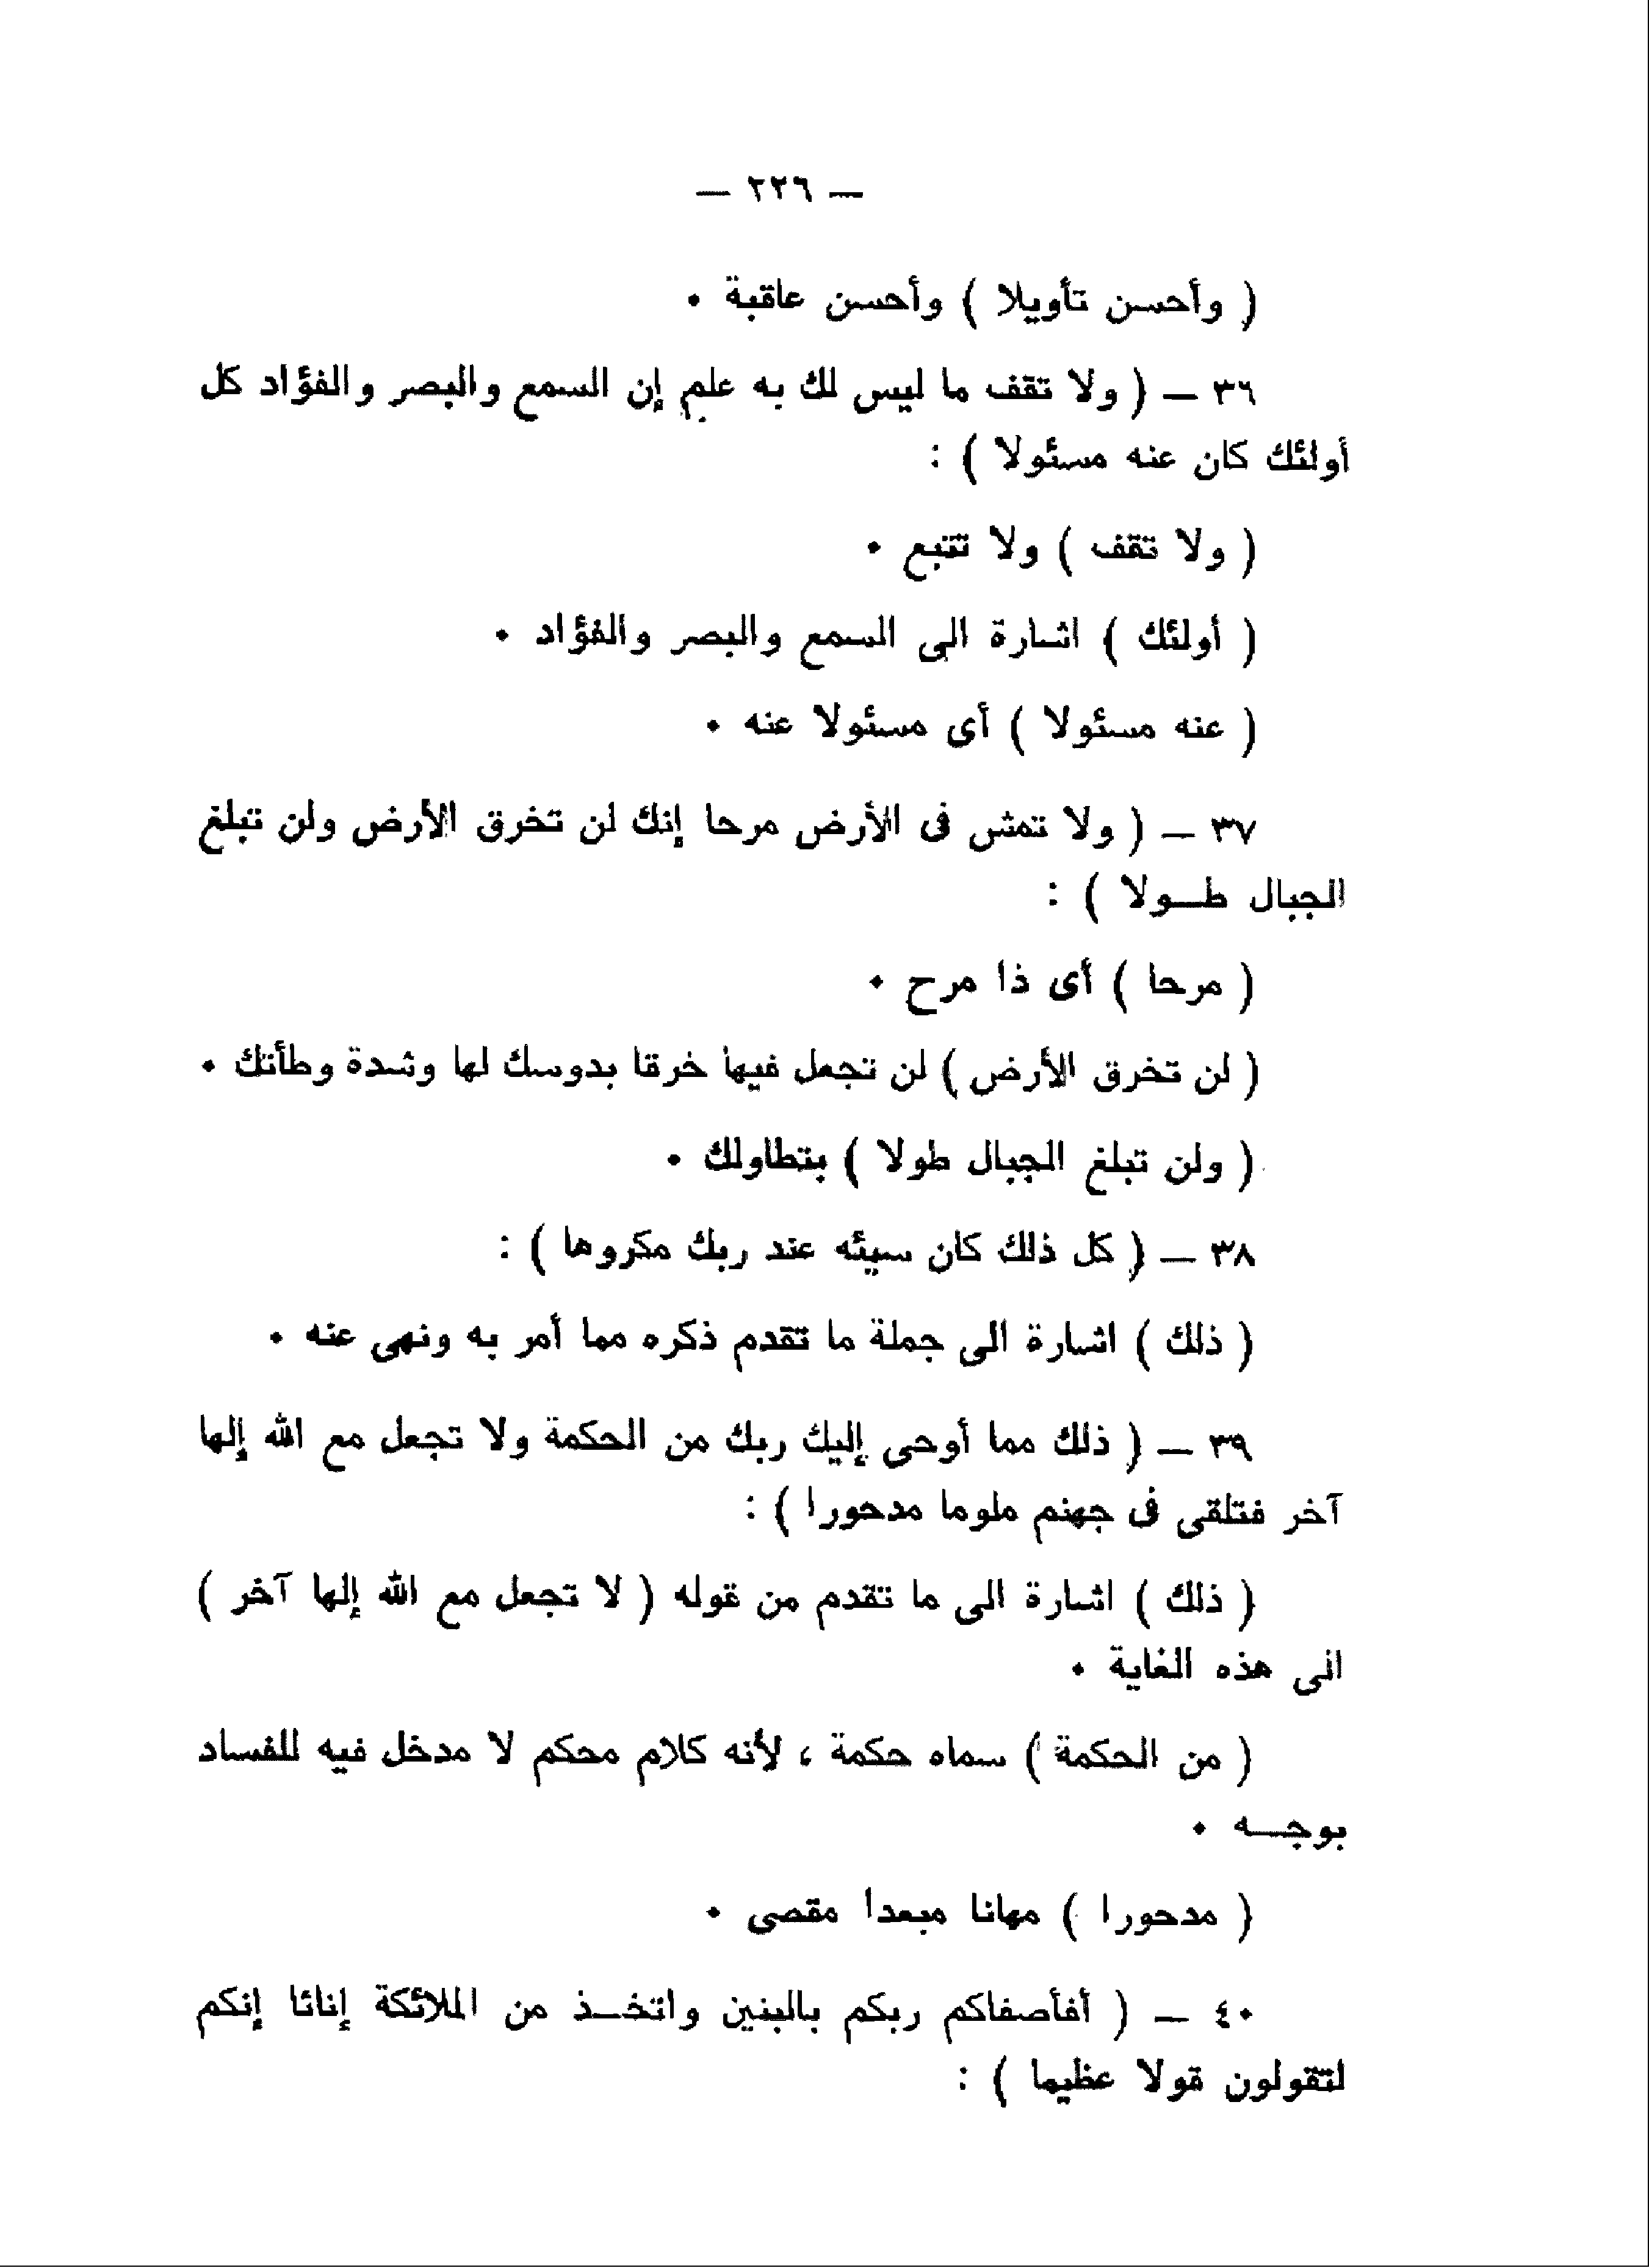 — ٢٢٦ —
( وأحسن تأويلا ) وأحسن عاقبة ٠
٣٦ — ( ولا تقف ما ليس لك به علم إن السمع والبصر والفؤاد كل
أولئك كان عنه مسئولا ) :
( ولا تقف ) ولا تتبع ٠
( أولئك ) اشارة الى السمع والبصر والفؤاد ٠
( عنه مسئولا ) أى مسئولا عنه ٠
٣٧ — ( ولا تمش فى الأرض مرحا إنك لن تخرق الأرض ولن تبلغ
الجبال طـولا ) :
( مرحا ) أى ذا مرح ٠
( لن تخرق الأرض ) لن تجعل فيها خرقا بدوسك لها وشدة وطأتك ٠
( ولن تبلغ الجبال طولا ) بتطاولك ٠
٣٨ — ( كل ذلك كان سيئه عند ربك مكروها ) :
( ذلك ) اشارة الى جملة ما تقدم ذكره مما أمر به ونهى عنه ٠
٣٩ — ( ذلك مما أوحى إليك ربك من الحكمة ولا تجعل مع الله إلها
آخر فتلقى فى جهنم ملوما مدحورا ) :
( ذلك ) اشارة الى ما تقدم من قوله ( لا تجعل مع الله إلها آخر )
الى هذه الغاية ٠
( من الحكمة ) سماه حكمة ، لأنه كلام محكم لا مدخل فيه للفساد
بوجـه ٠
( مدحورا ) مهانا مبعدا مقصى ٠
٤٠ — ( أفأصفاكم ربكم بالبنين واتخـذ من الملائكة إناثا إنكم
لتقولون قولا عظيما ) :